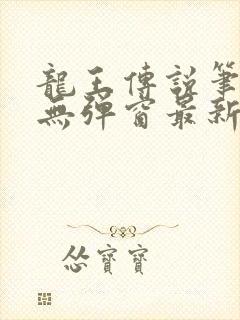 龍王傳說筆
無彈窗最新
慫寶寶